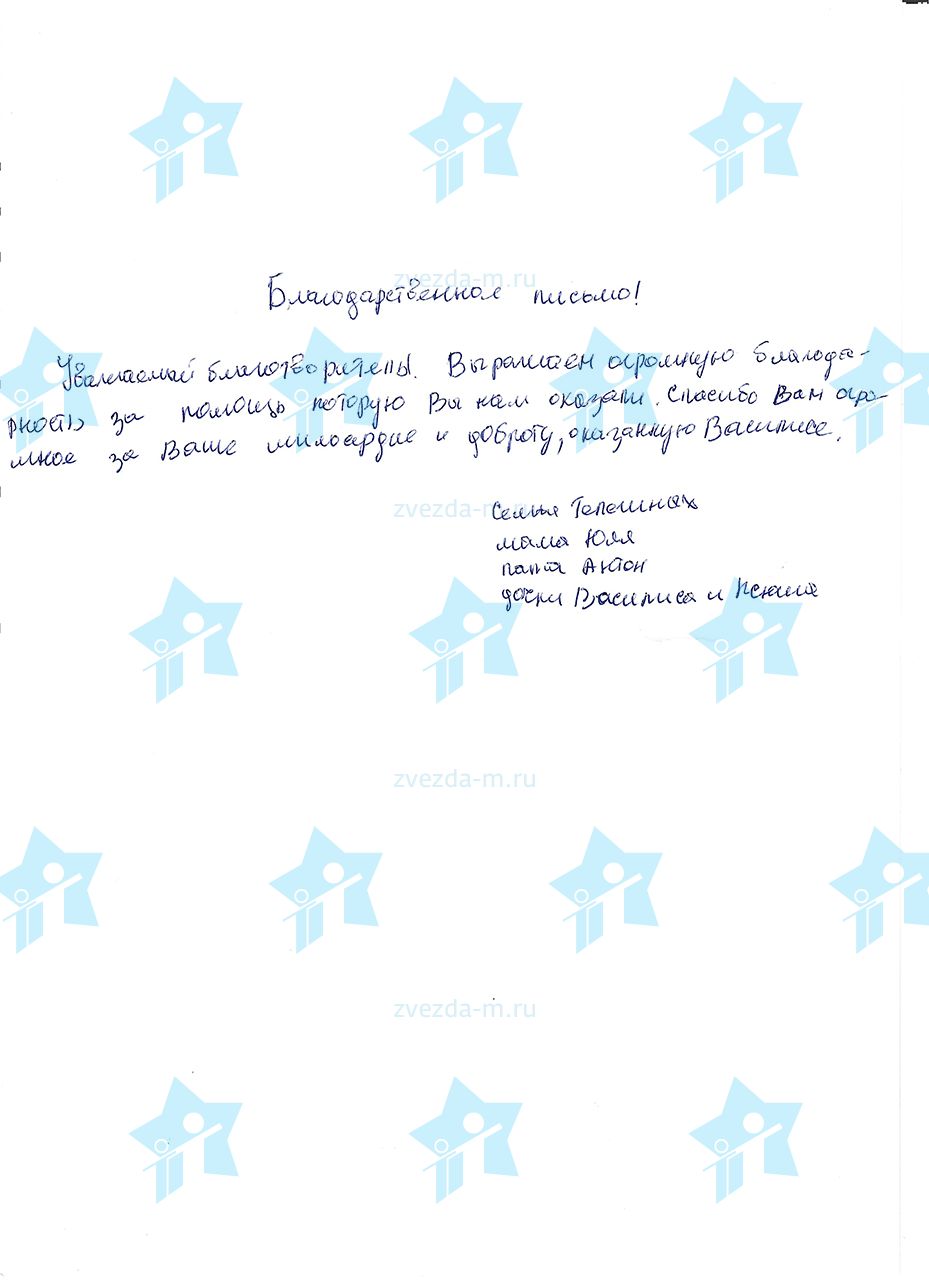 zvezda-m.ru
Благодарственное письмо!
Уважаемый благотворитепы. Выражаем огромную благода-
рность за помощь которую Вы нам оказали. Спасибо Вам огро-
мное за Ваше милосердие и доброту, оказанную Василисе.
zvezda-m.ru
Семья
мама Юля
папа Антон
дочки Василиса и Ксюша
zvezda-m.ru
zvezda-m.ru